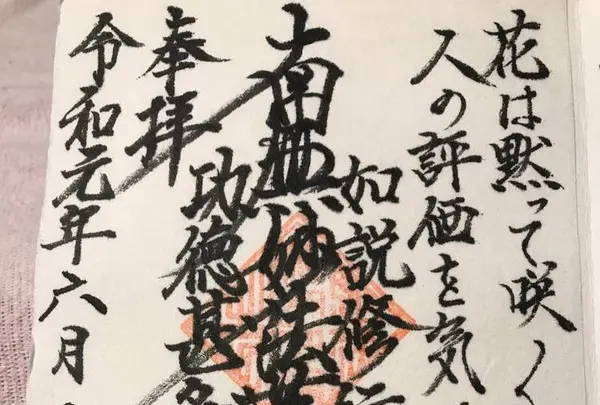 花は黙って咲く
人の評価を気
如説修行
南無妙法蓮
功徳甚多
奉拝
令和元年六月